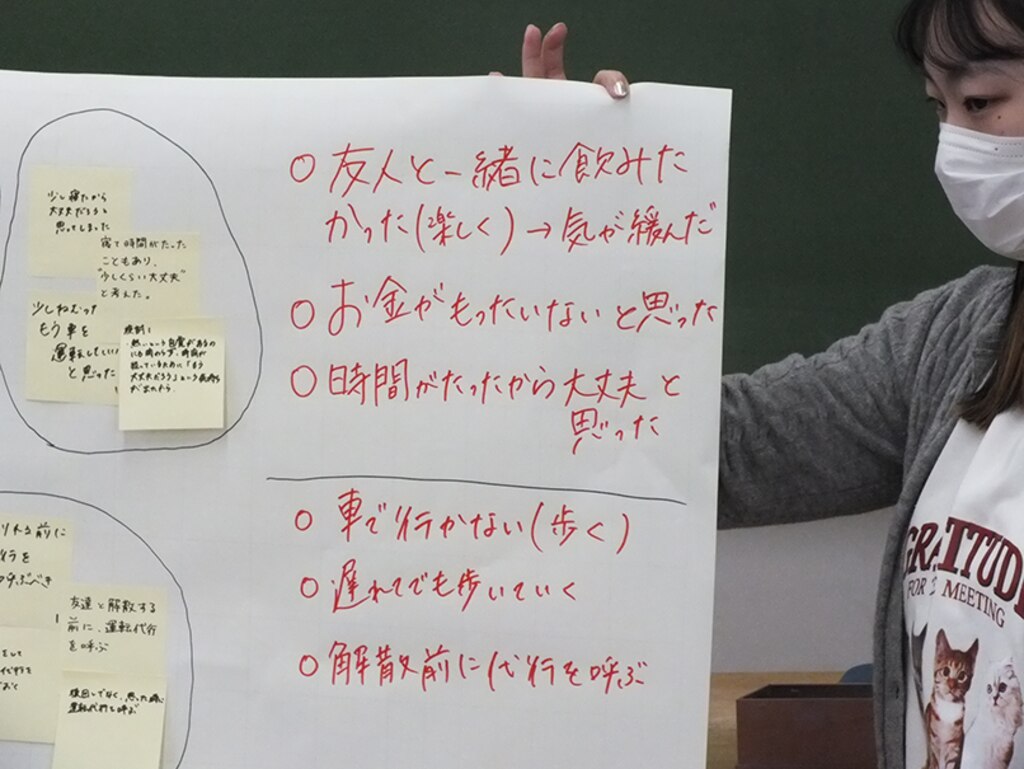 少し寝たから
大丈夫だろうと
思ってしまった
寝て時間がたった
こともあり、
"少しくらい大丈夫"
と考えた。
少しねむった
もう車を
運転していい
と思った
○友人と一緒に飲みた
かった(楽しく)→気が緩んだ
○お金がもったいないと思った
○時間がたったから大丈夫と
思った
○車で行かない(歩く)
○遅れてでも歩いていく
○解散前に代行を呼ぶ
前に
呼ぶべき
友達と解散する
前に、運転代行
を呼ぶ
運転代行を呼ぶ
GRATITUDE
FOR MEETING